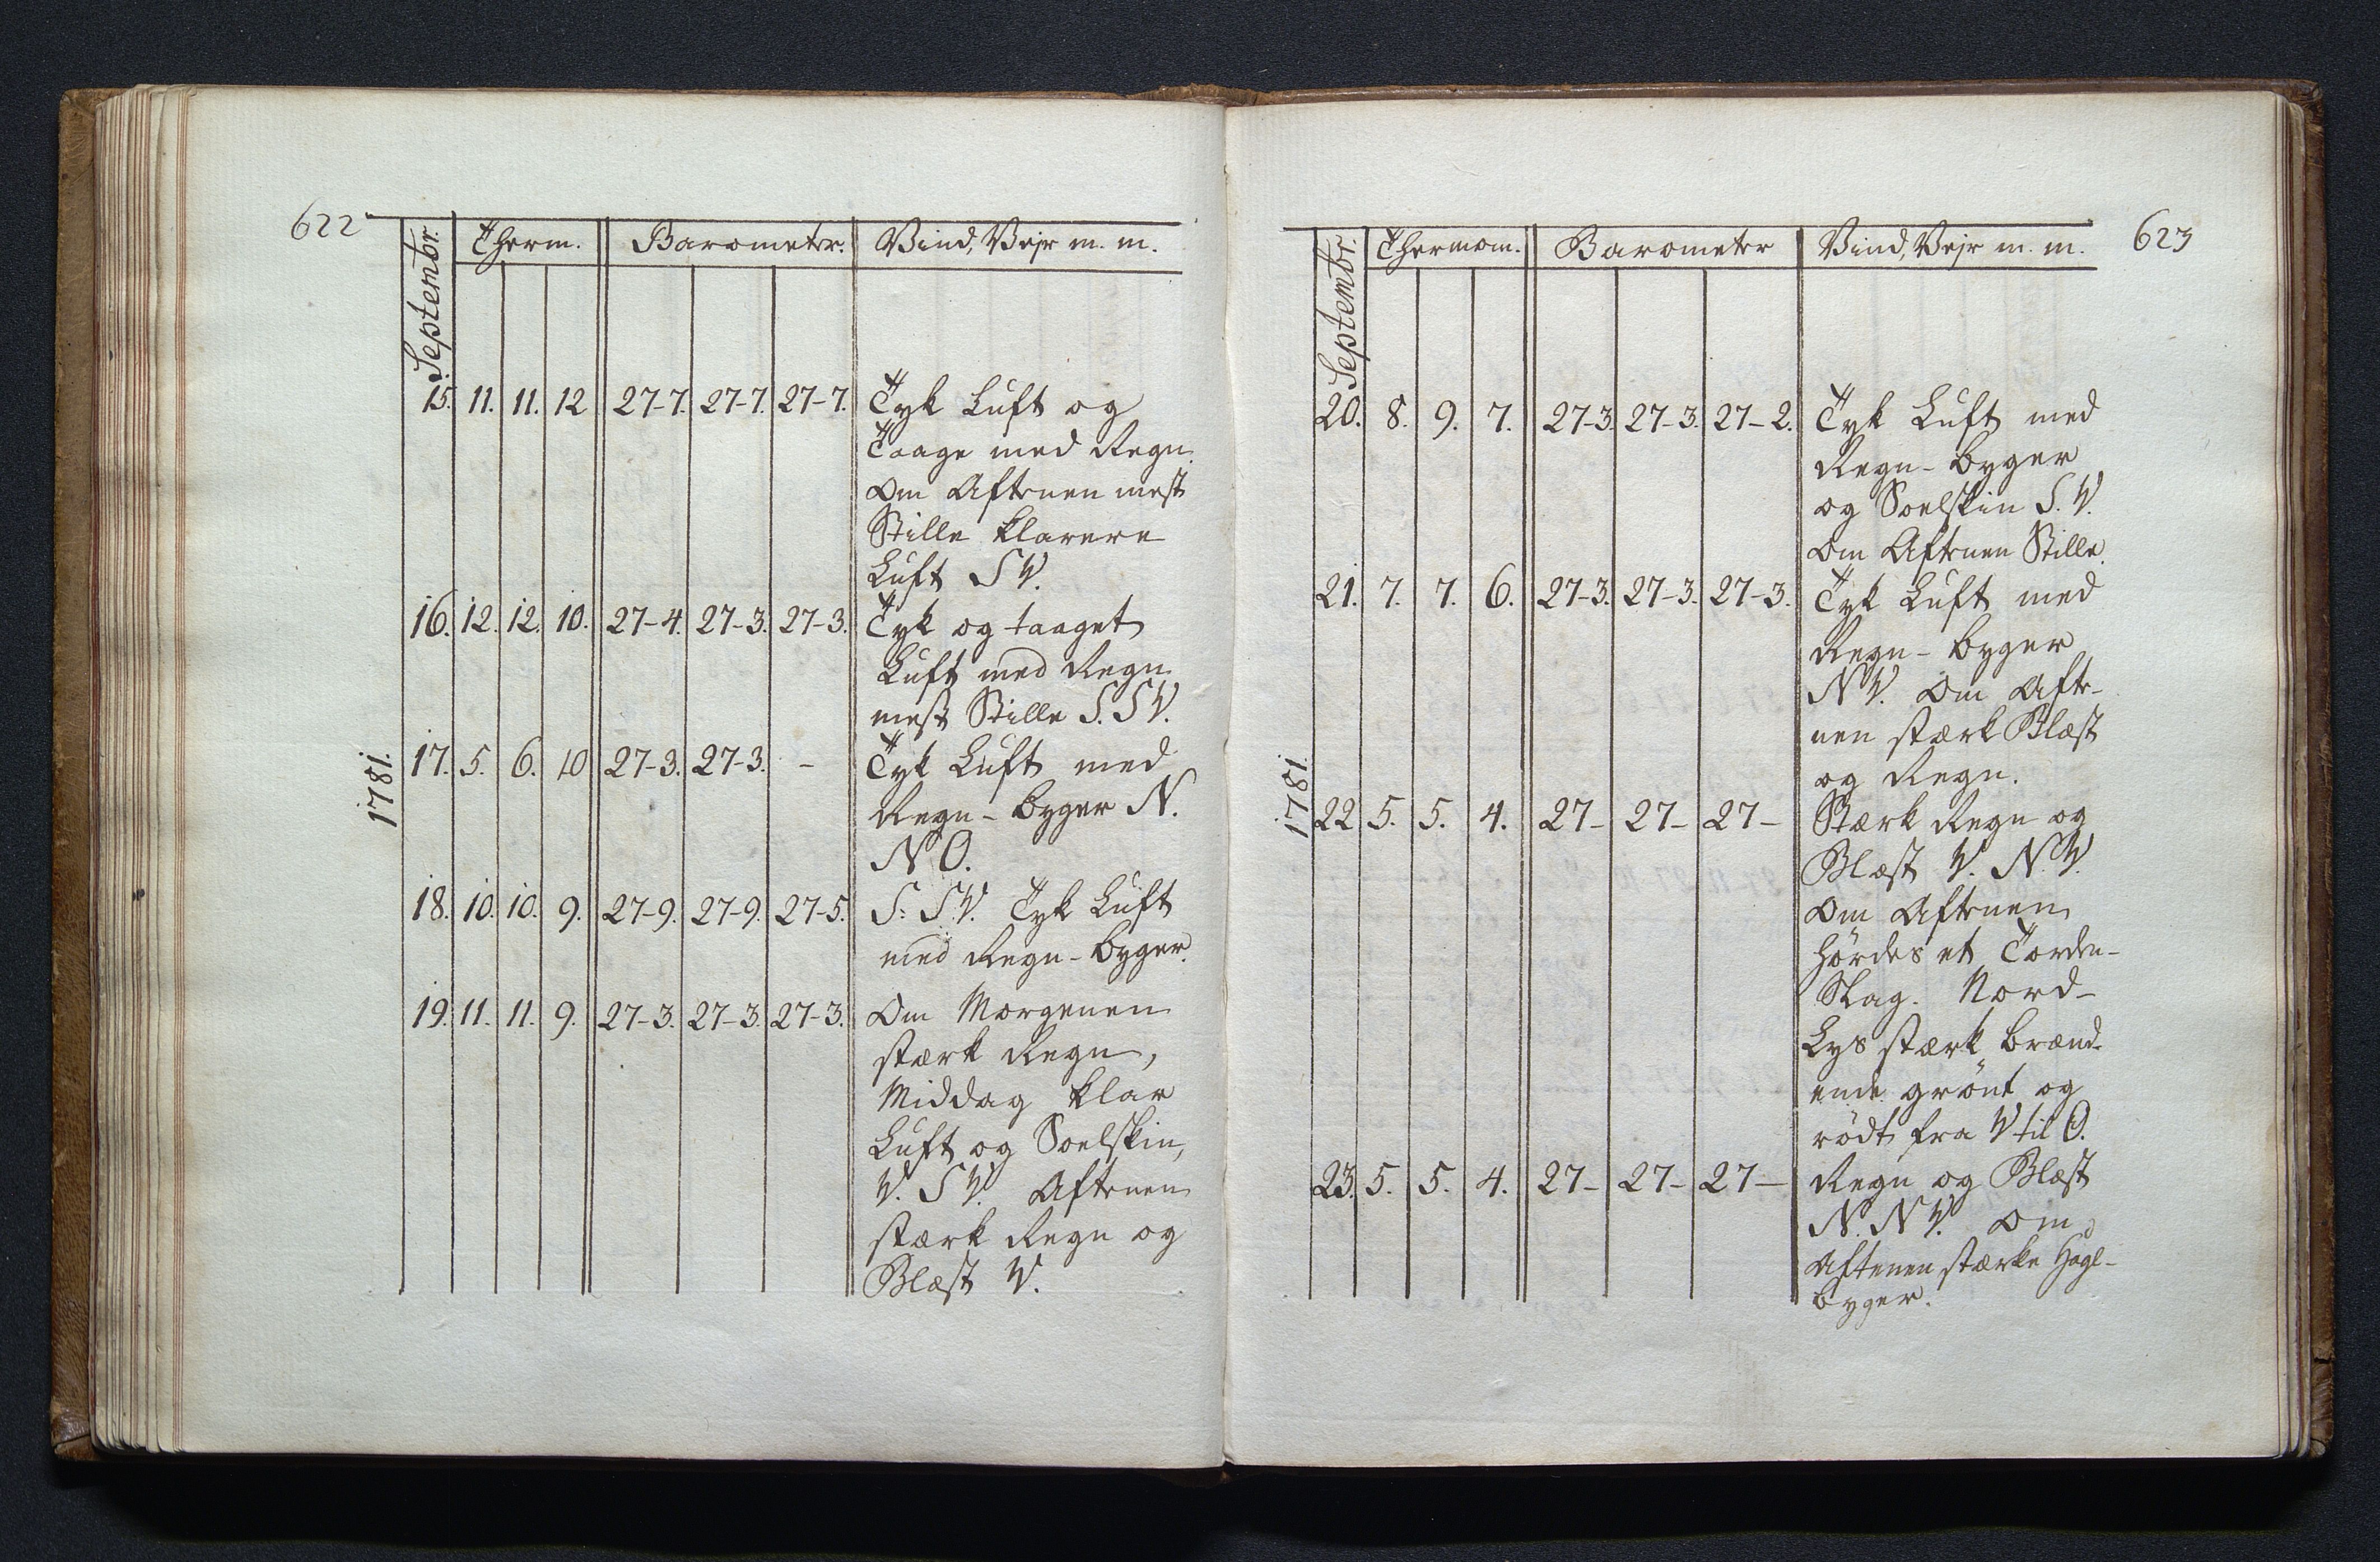 622
Septembr. Therm. Barometer. Vind, Vejr m. m.
1781.
15. 11. 11. 12 27-7. 27-7. 27-7. Tyk Luft og
Taage med Regn.
Om Aftenen mest
Stille klarere
Luft S V.
16. 12. 12. 10. 27-4. 27-3. 27-3. Tyk og taaget
Luft med Regn
mest Stille S. S V.
17. 5. 6. 10 27-3. 27-3. - Tyk Luft med
Regn-byger N.
N O.
18. 10. 10. 9. 27-9. 27-9. 27-5. S: S. V. Tyk Luft
med Regn-byger.
19. 11. 11. 9. 27-3. 27-3. 27-3. Om Morgenen
stærk Regn,
Middag klar
Luft og Soelskin,
V. S V. Aftenen
stærk Regn og
Blæst V.
623
Septembr. Thermom. Barometer Vind, Vejr m. m.
1781.
20. 8. 9. 7. 27-3. 27-3. 27-2. Tyk Luft med
Regn-byger
og Soelskin S. V.
Om Aftenen Stille.
21. 7. 7. 6. 27-3. 27-3. 27-3. Tyk Luft med
Regn-byger
N V. Om Afte-
nen stærk Blæst
og Regn.
22 5. 5. 4. 27- 27- 27- Stærk Regn og
Blæst V. N. V.
Om Aftenen
hördes et Torden-
Slag. Nord-
Lys stærk brænd-
ende grönt og
rödt fra V til O.
23. 5. 5. 4. 27- 27- 27- Regn og Blæst
N. N V. Om
Aftenen stærke Hagl-
byger.